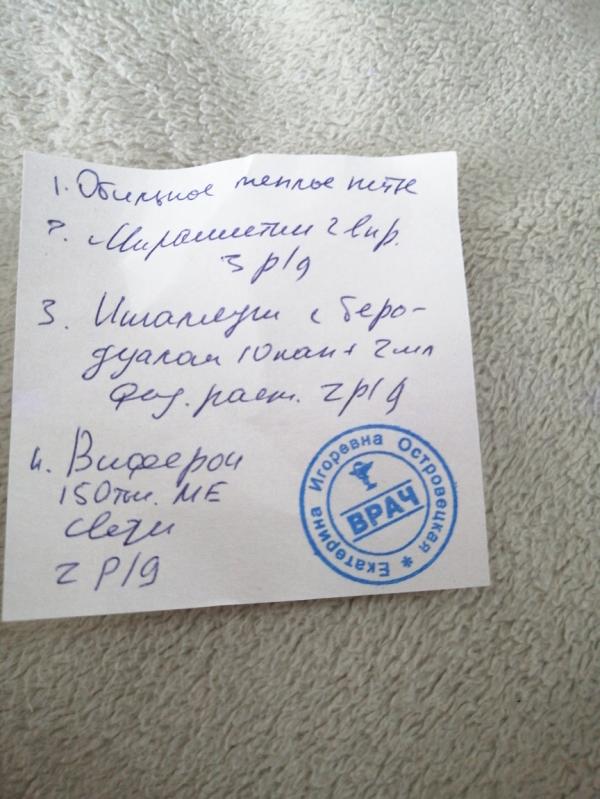 1. Обильное теплое питье
2. Мирамистин 2 впр.
3 р/д
3. Ингаляции с беро-
дуалом 10 кап + 2 мл
физ. раств. 2 р/д
4. Виферон
150 тыс. МЕ
свечи
2 р/д
Екатерина Игоревна Островецкая *
ВРАЧ